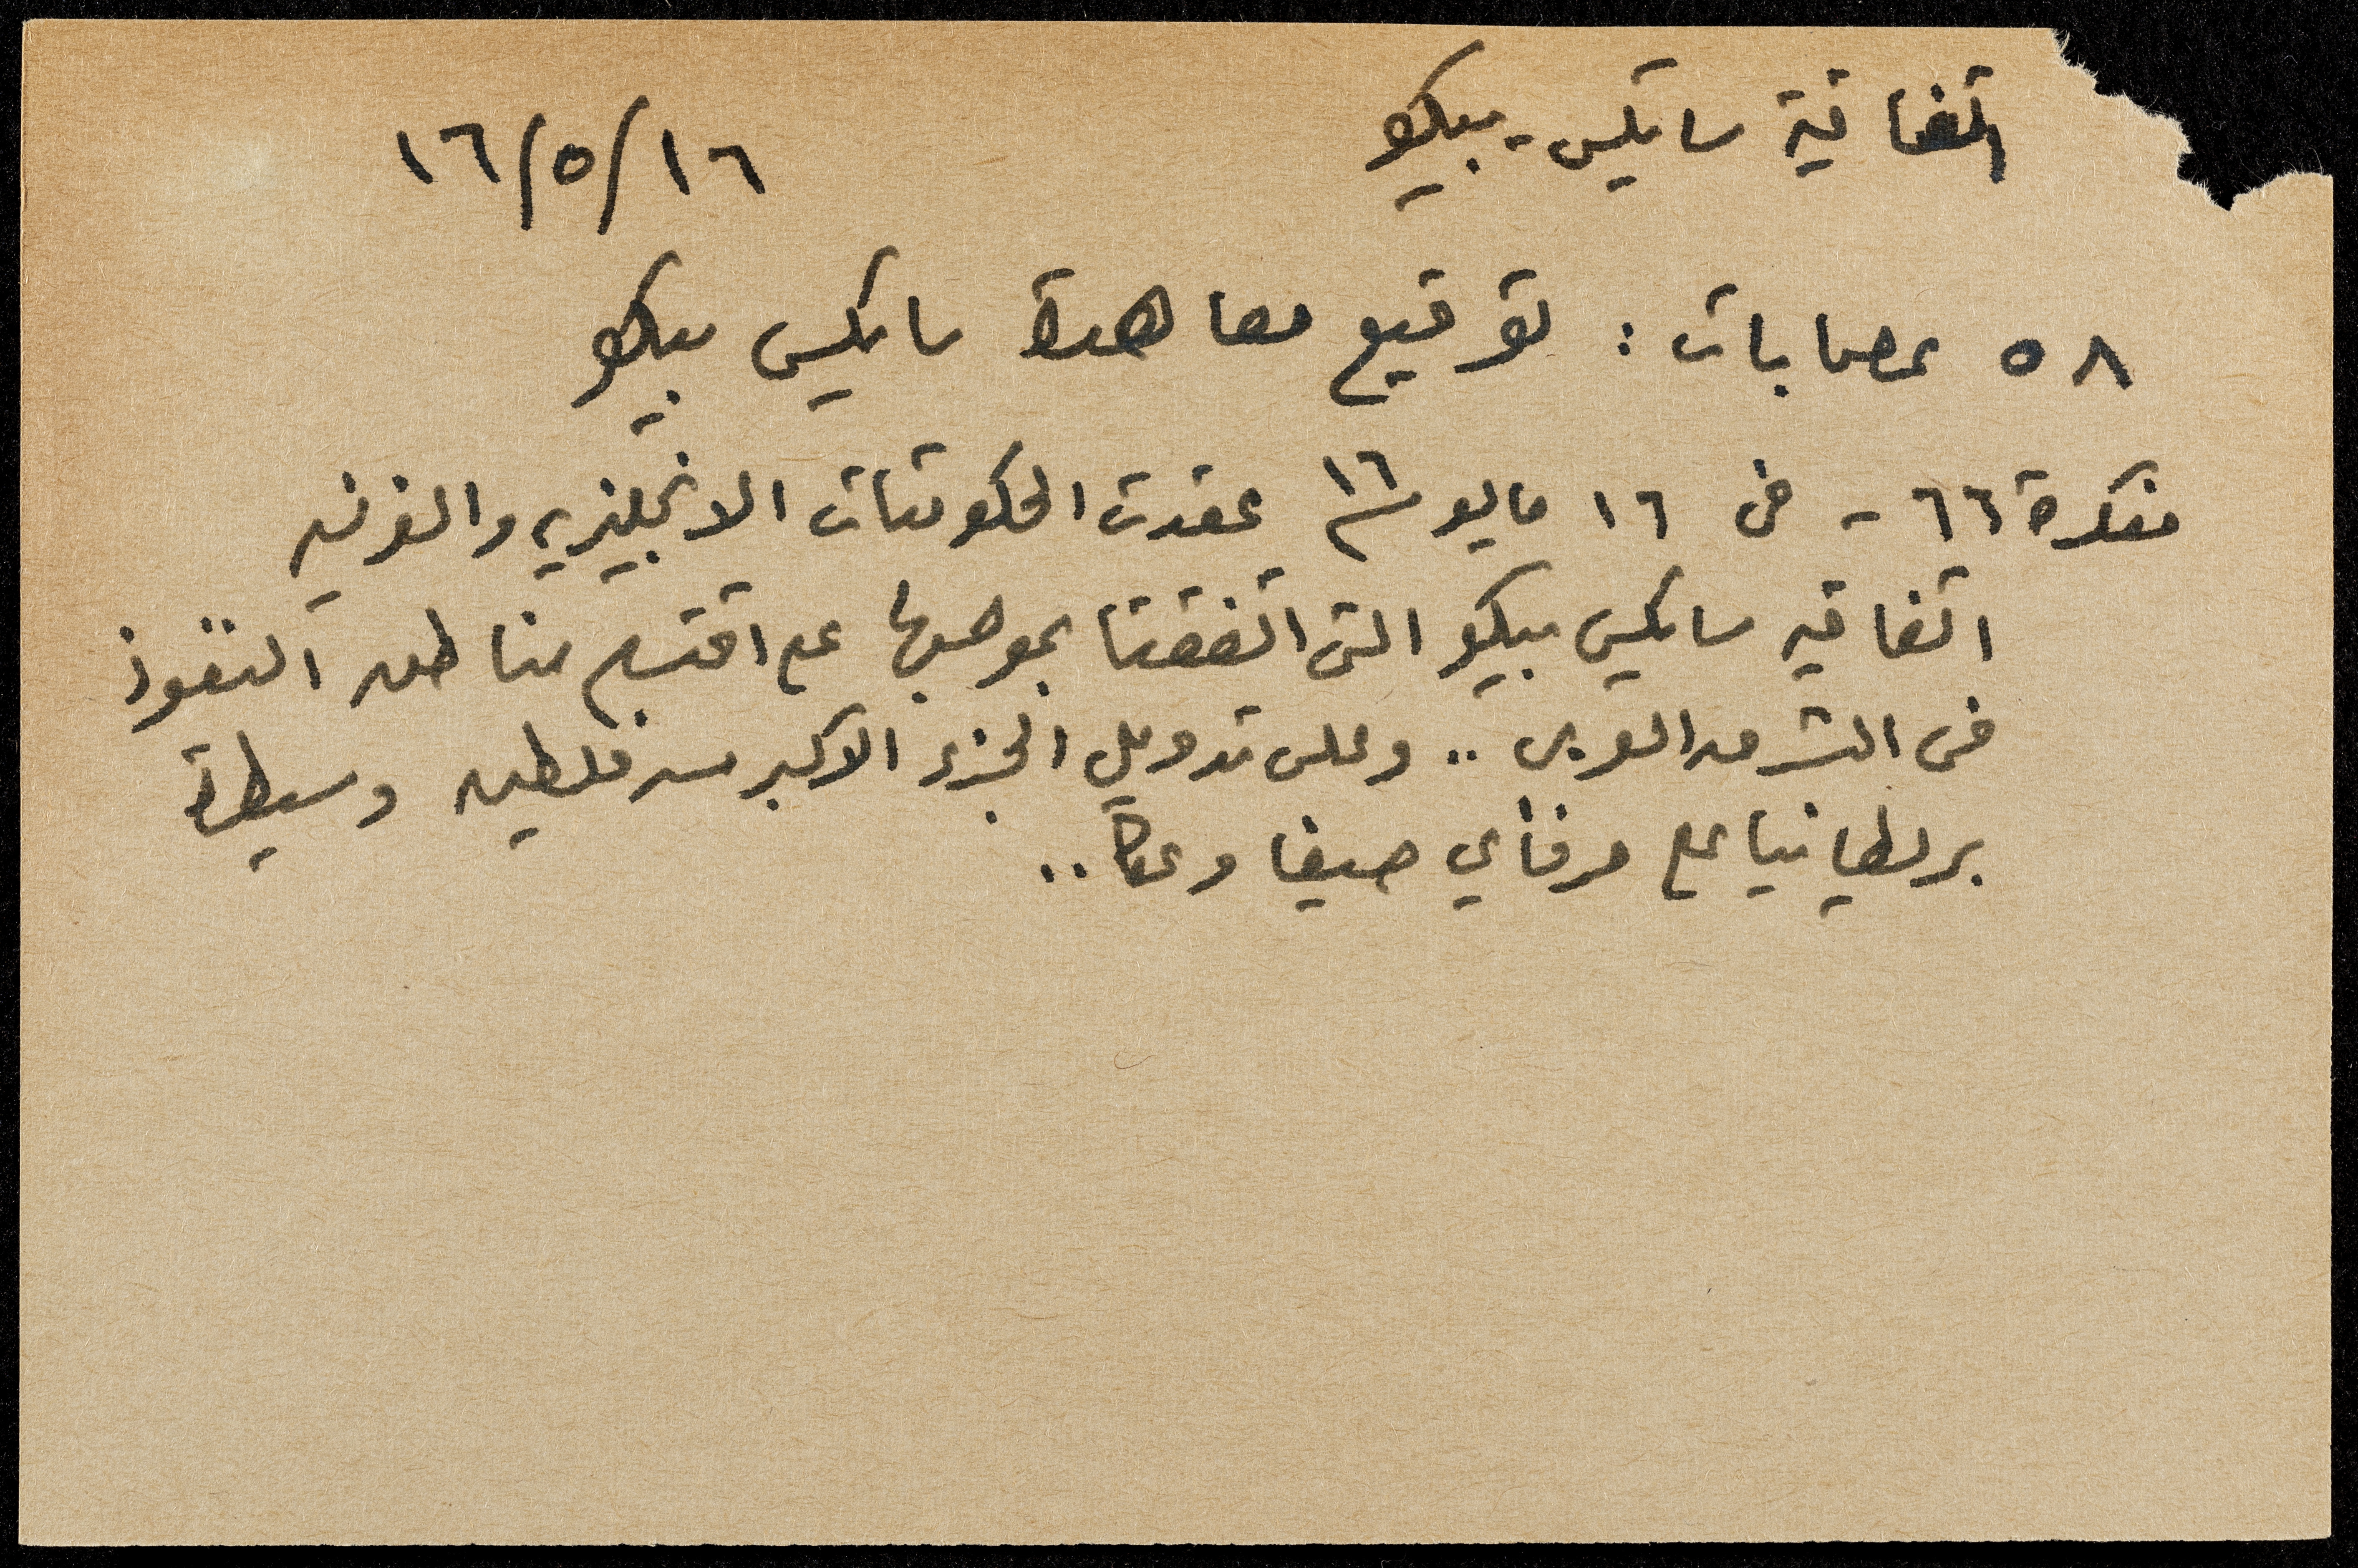 اتفاقية سايكس - بيكو
١٦/٥/١٦
٥٨ عصابات : توقيع معاهدة سايكس بيكو
مفكرة ٦٦ - فى ١٦ مايو ١٦ عقدت الحكومتان الانجليزيه والفرنسيه
اتفاقيه سايكس بيكو التى اتفقتا بموجبها على اقتسام مناطق النفوذ
فى الشرق العربى .. وعلى تدويل الجزء الاكبر من فلسطين وسيطرة
بريطانيا على مرفأي حيفا وعكا ..